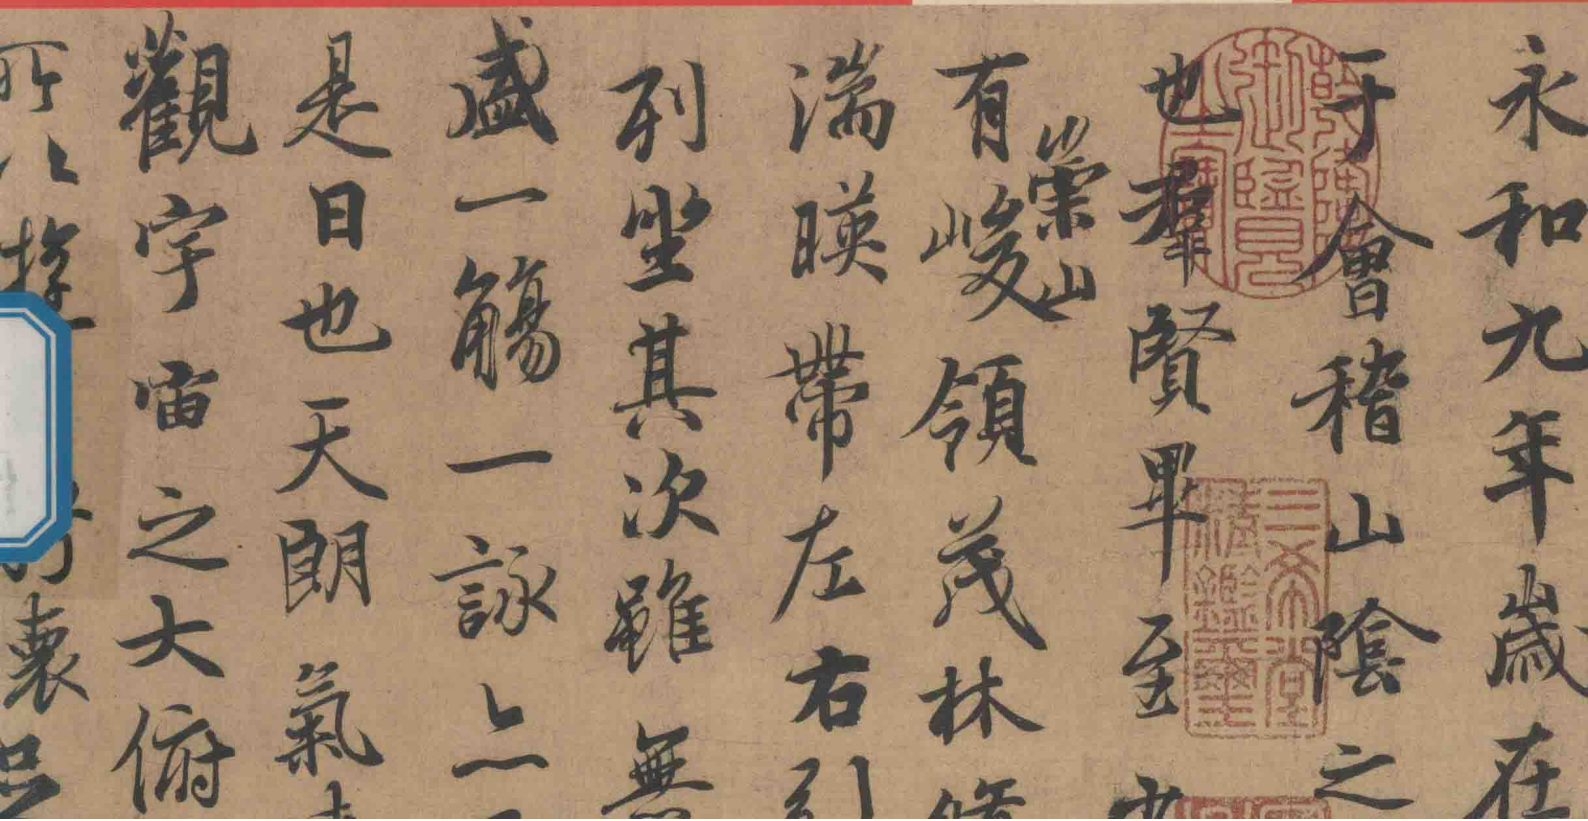 永和九年歲在
于會稽山陰之
也羣賢畢至少
崇山
有峻領茂林脩
湍暎帶左右引
列坐其次雖無
盛一觴一詠亦
是日也天朗氣清
觀宇宙之大俯
所以遊
懷
三希堂精鑑璽